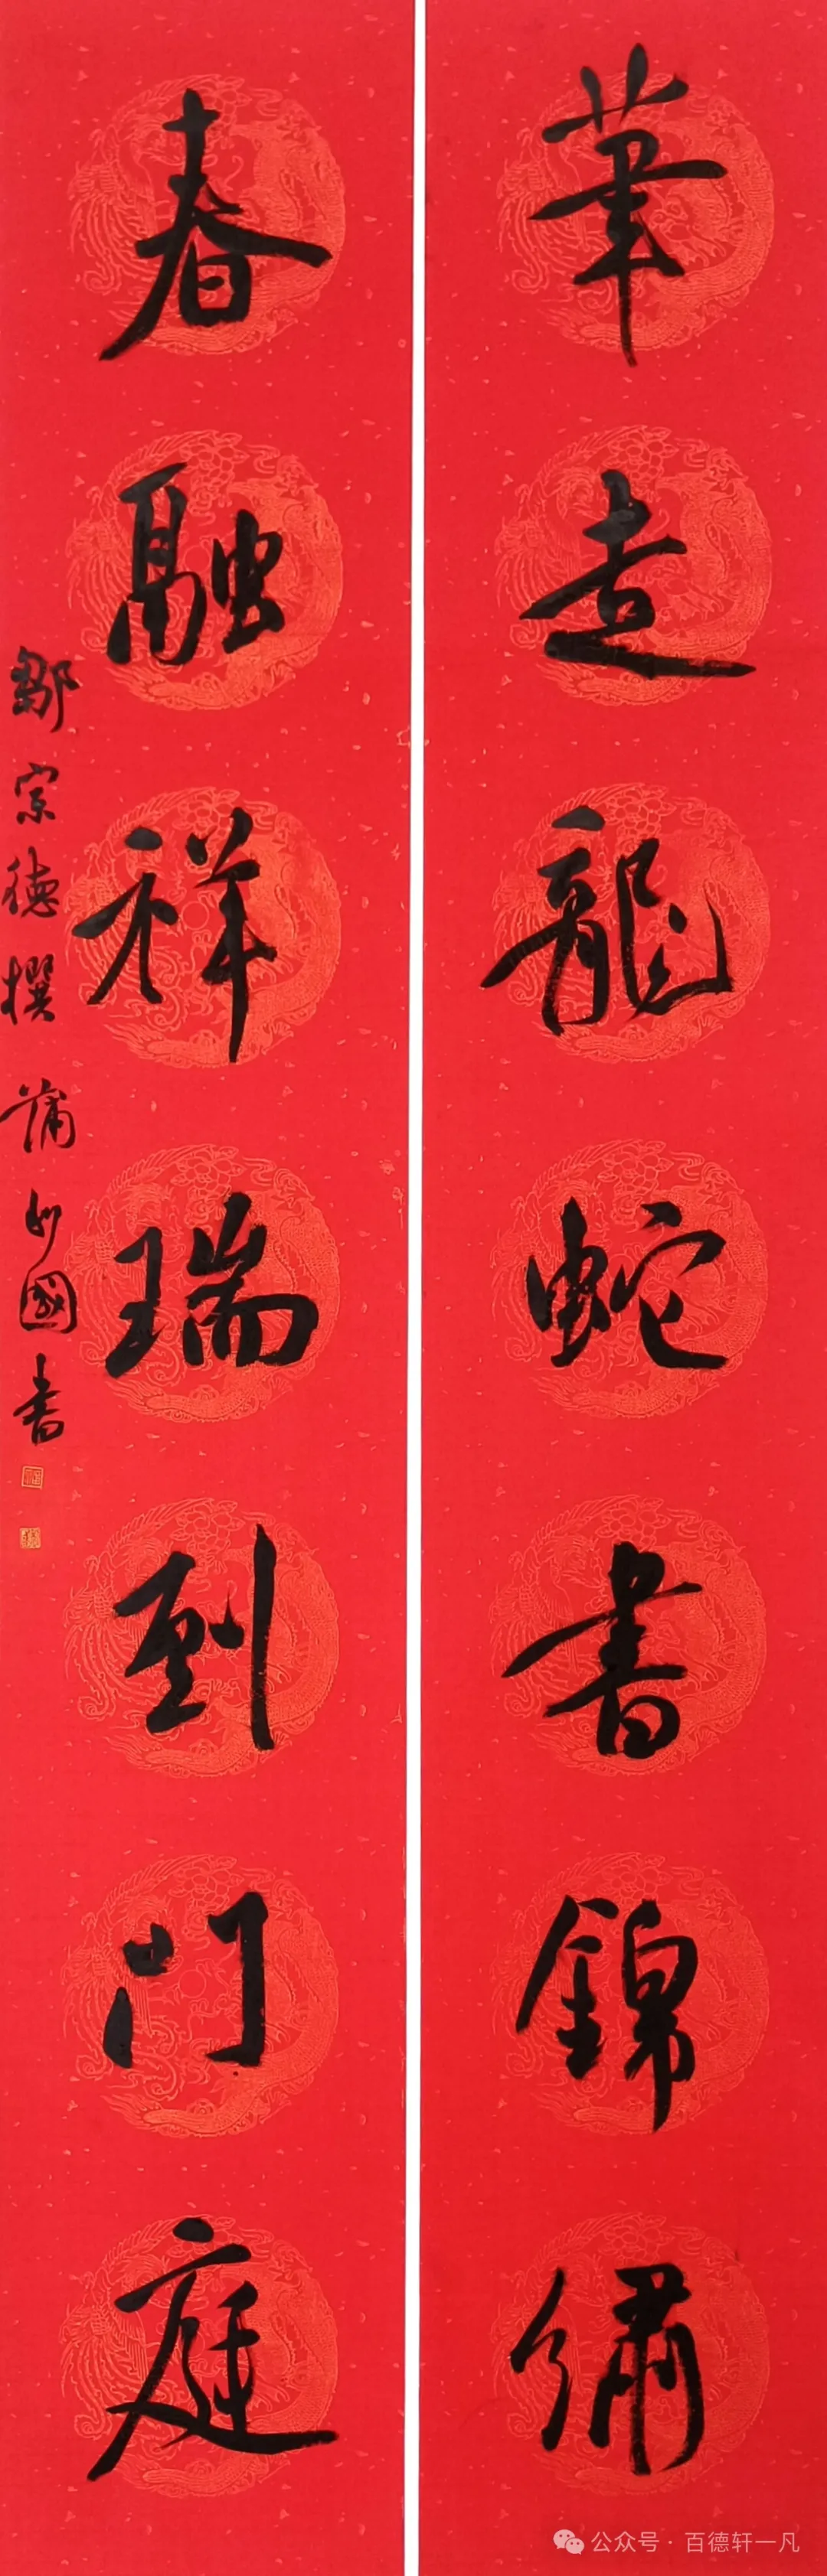 筆走龍蛇書錦繡
春融祥瑞到门庭
鄒宗德撰 蒲少國書
公众号·百德轩一凡